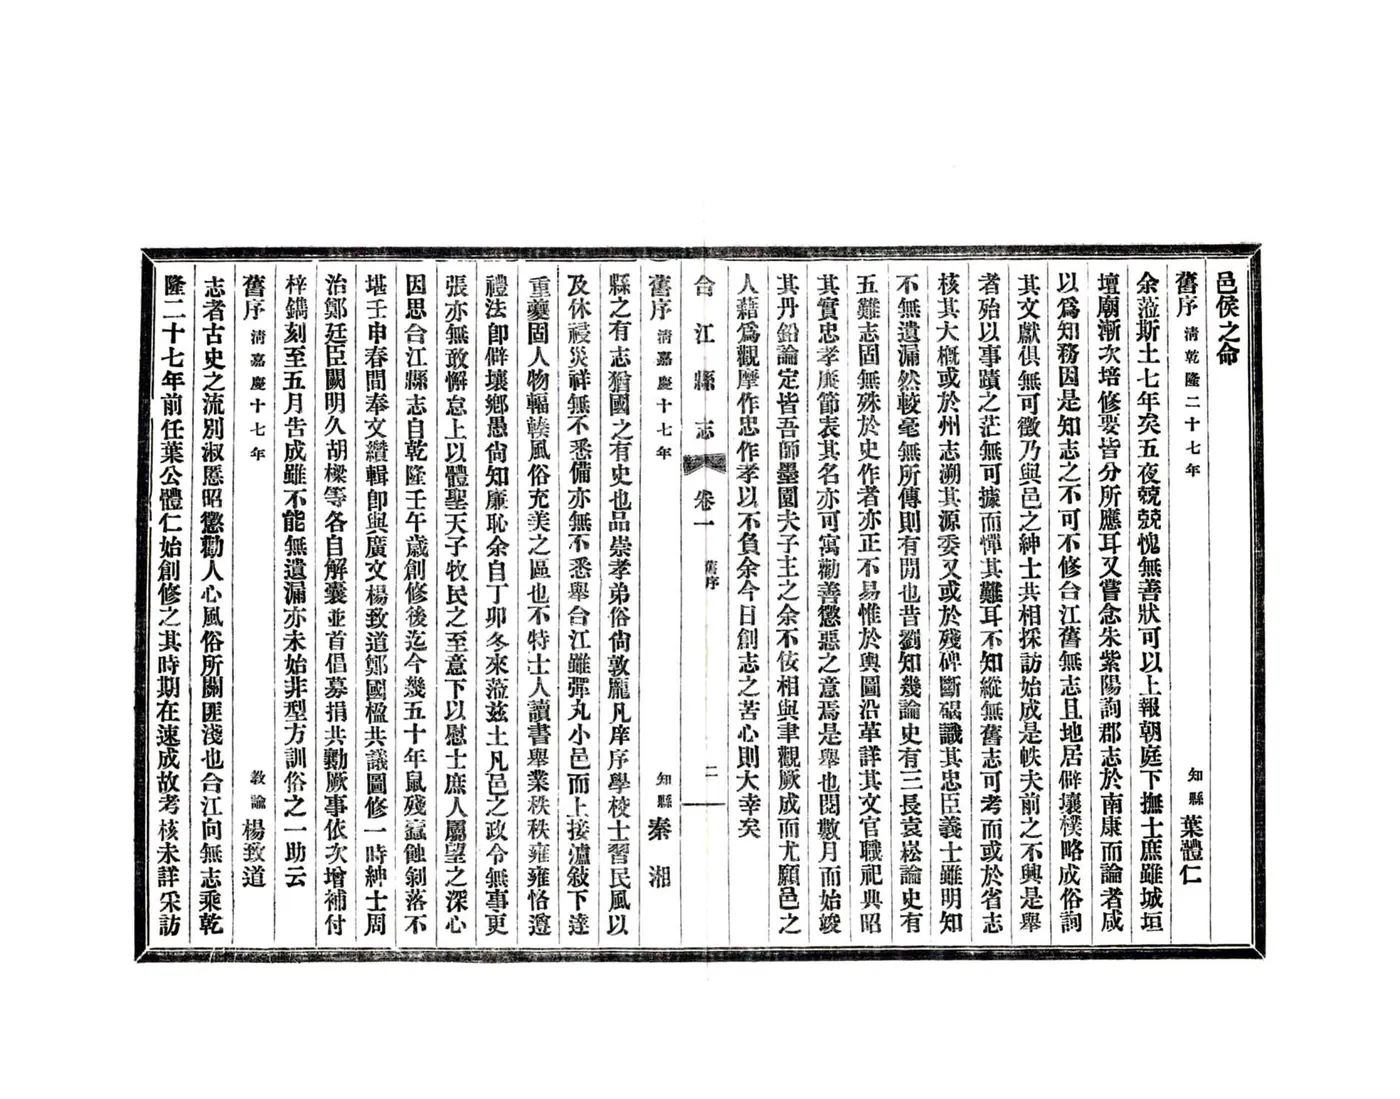 邑侯之命
舊序 清乾隆二十七年 知縣 葉體仁
余蒞斯土七年矣五夜兢兢愧無善狀可以上報朝庭下撫士庶雖城垣
壇廟漸次培修要皆分所應耳又嘗念朱紫陽詢郡志於南康而論者咸
以爲知務因是知志之不可不修合江舊無志且地居僻壤樸略成俗詢
其文獻俱無可徵乃與邑之紳士共相採訪始成是帙夫前之不興是舉
者殆以事蹟之茫無可據而憚其難耳不知縱無舊志可考而或於省志
核其大概或於州志溯其源委又或於殘碑斷碣識其忠臣義士雖明知
不無遺漏然較毫無所傳則有閒也昔劉知幾論史有三長袁崧論史有
五難志固無殊於史作者亦正不易惟於輿圖沿革詳其文官職祀典昭
其實忠孝廉節表其名亦可寓勸善懲惡之意焉是舉也閱數月而始竣
其丹鉛論定皆吾師墨園夫子主之余不佞相與聿觀厥成而尤願邑之
人藉爲觀摩作忠作孝以不負余今日創志之苦心則大幸矣
合江縣志 卷一 舊序 二
舊序 清嘉慶十七年 知縣 秦湘
縣之有志猶國之有史也品崇孝弟俗尙敦龐凡庠序學校士習民風以
及休祲災祥無不悉備亦無不悉舉合江雖彈丸小邑而上接瀘敍下達
重夔固人物輻輳風俗充美之區也不特士人讀書舉業秩秩雍雍恪遵
禮法卽僻壤鄉愚尙知廉恥余自丁卯冬來蒞茲土凡邑之政令無事更
張亦無敢懈怠上以體聖天子牧民之至意下以慰士庶人屬望之深心
因思合江縣志自乾隆壬午歲創修後迄今幾五十年鼠殘蠹蝕剝落不
堪壬申春間奉文纘輯卽與廣文楊致道鄭國楹共議圖修一時紳士周
治鄭廷臣闕明久胡樑等各自解囊並首倡募捐共勷厥事依次增補付
梓鐫刻至五月告成雖不能無遺漏亦未始非型方訓俗之一助云
舊序 清嘉慶十七年 教諭 楊致道
志者古史之流別淑慝昭懲勸人心風俗所關匪淺也合江向無志乘乾
隆二十七年前任葉公體仁始創修之其時期在速成故考核未詳采訪